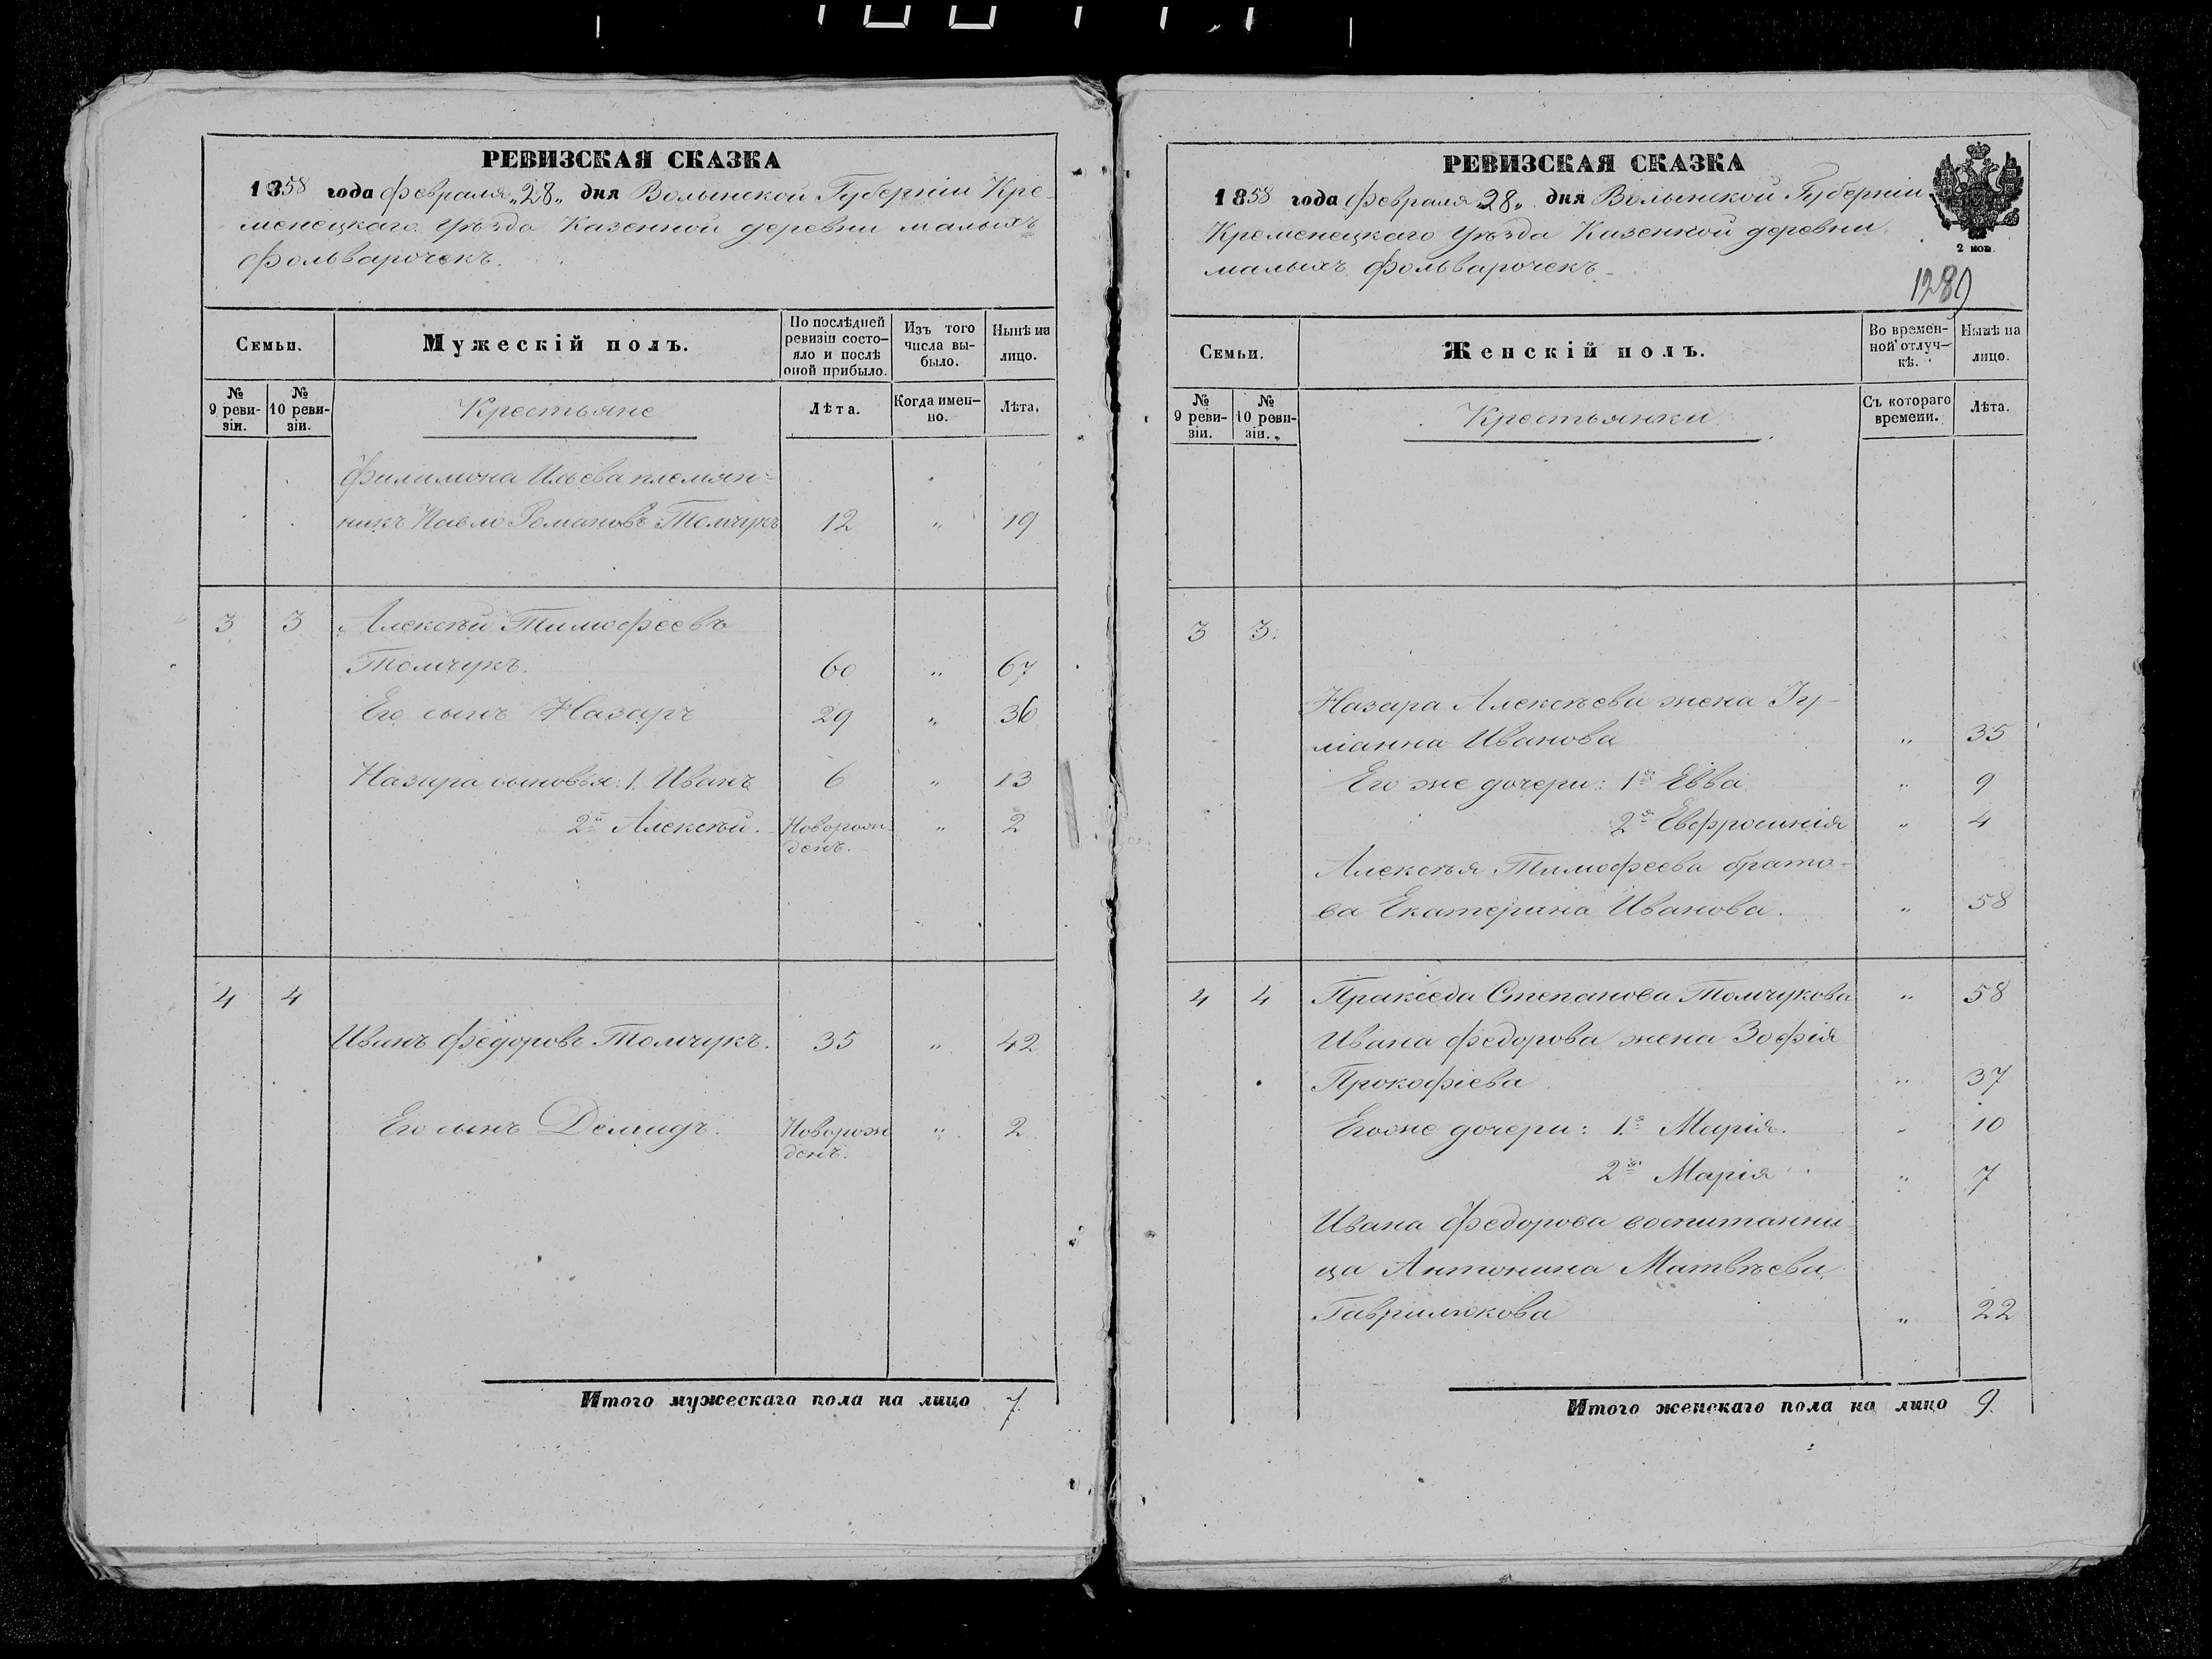 РЕВИЗСКАЯ СКАЗКА
1858 года февраля „28„ дня Волынской Губерніи Кре-
менецкаго Уѣзда Казенной деревни малыхъ
фольварочекъ.
Семьи.
Мужескій полъ.
По послѣдней ревизіи состо-
яло и послѣ оной прибыло.
Изъ того числа вы-
было.
Нынѣ на лицо.
№ 9 реви-
зіи.
№ 10 реви-
зіи.
Крестьяне
Лѣта.
Когда имен-
но.
Лѣта.
Филимона Ильева племян-
никъ Павло Романовъ Томчукъ 12 „ 19
3 3 Алексѣй Тимофеевъ
Томчукъ. 60 „ 67
Его сынъ Назаръ 29 „ 36
Назара сыновья: 1. Иванъ 6 „ 13
2й Алексѣй. Новорож-
денъ. „ 2
4 4
Иванъ Федоровъ Томчукъ. 35 „ 42
Его сынъ Демидъ. Новорож
денъ. „ 2
Итого мужескаго пола на лицо 7.
РЕВИЗСКАЯ СКАЗКА
1858 года февраля „28„ дня Волынской Губерніи
Кременецкаго Уѣзда Казенной деревни
малыхъ фольварочекъ
2 коп.
1289
Семьи.
Женскій полъ.
Во времен-
ной отлуч-
кѣ.
Нынѣ на лицо.
№ 9 реви-
зіи.
№ 10 реви-
зіи.
Крестьянки
Съ котораго времени.
Лѣта.
3 3.
Назара Алексѣева жена Іу-
ліанна Иванова „ 35
Его же дочери: 1я Евва „ 9
2я Евфросинія „ 4
Алексѣя Тимофеева брато-
ва Екатерина Иванова. „ 58
4 4 Пракседа Степанова Томчукова „ 58
Ивана Федорова жена Зофія
Прокофіева „ 37
Его же дочери: 1.я Марія. „ 10
2я Марія „ 7
Ивана Федорова воспитанни-
ца Антонина Матвѣева
Гаврилюкова „ 22
Итого женскаго пола на лицо 9.